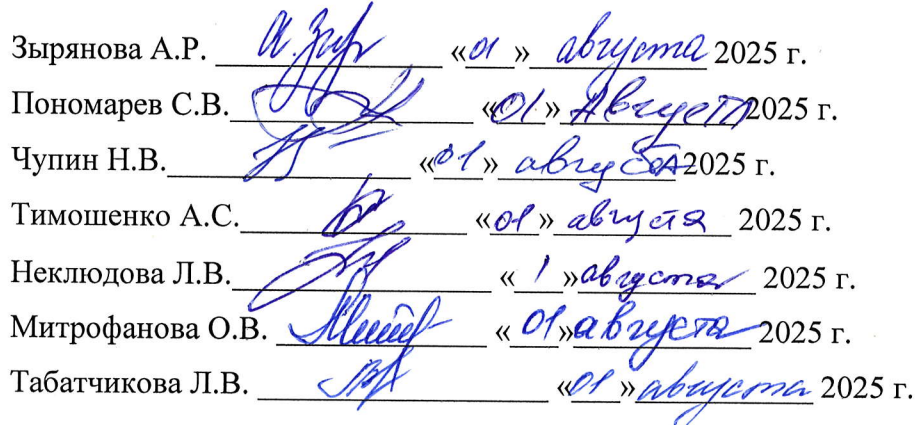 Зырянова А.Р. А. Зыр «01» августа 2025 г.
Пономарев С.В. «01» Августа 2025 г.
Чупин Н.В. «01» августа 2025 г.
Тимошенко А.С. «01» августа 2025 г.
Неклюдова Л.В. «1» августа 2025 г.
Митрофанова О.В. «01» августа 2025 г.
Табатчикова Л.В. «01» августа 2025 г.